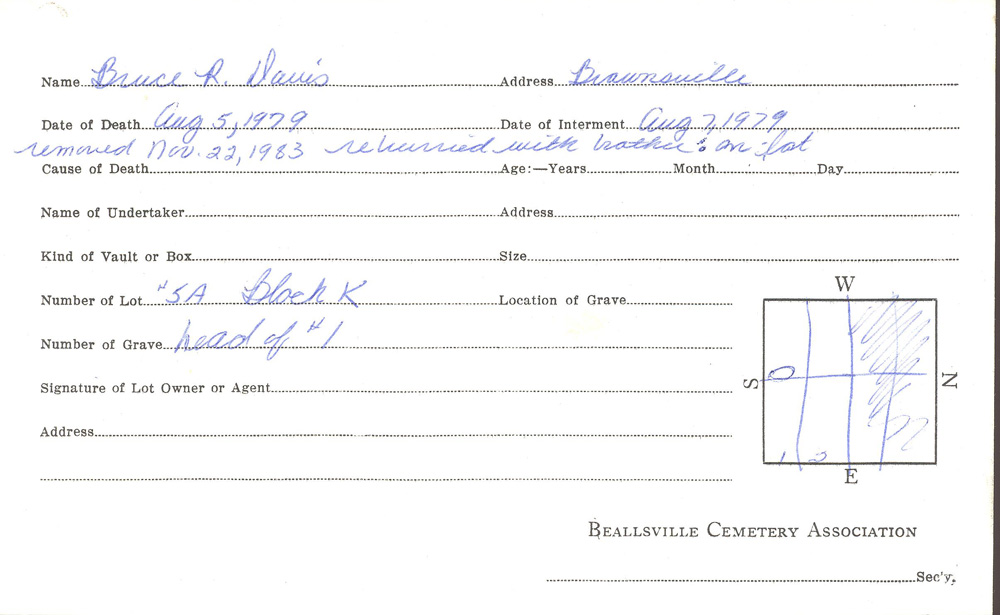 Name Bruce R. Davis Address Brownsville
Date of Death Aug 5, 1979 Date of Interment Aug 7, 1979
removed Nov. 22, 1983 reburried with on lot
Cause of Death Age:—Years Month Day
Name of Undertaker Address
Kind of Vault or Box Size
Number of Lot #5A Block K Location of Grave
W
Number of Grave head of #1
S N
Signature of Lot Owner or Agent
Address
1 2
E
BEALLSVILLE CEMETERY ASSOCIATION
Sec'y.